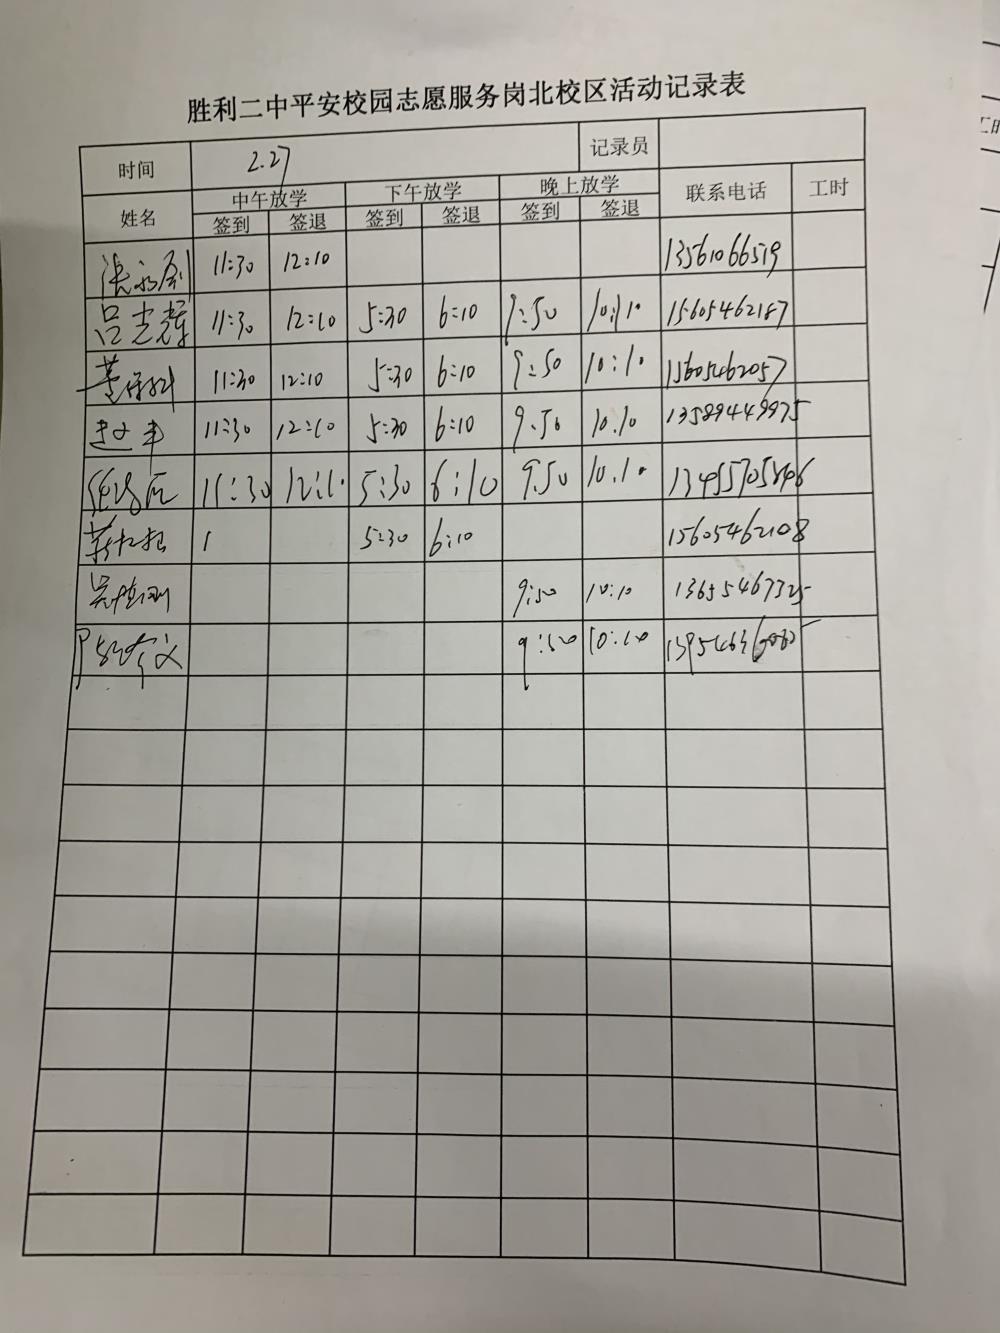 胜利二中平安校园志愿服务岗北校区活动记录表
时间 2.27 记录员
姓名 中午放学 下午放学 晚上放学 联系电话 工时
签到 签退 签到 签退 签到 签退
11:30 12:10 13561066519
吕志辉 11:30 12:10 5:30 6:10 9:50 10:10 15605462187
11:30 12:10 5:30 6:10 9:50 10:10 15605462057
赵文丰 11:30 12:10 5:30 6:10 9.50 10.10 13589449975
11:30 12:10 5:30 6:10 9.50 10.10
1 5:30 6:10 15605462108
9:50 10:10 13655467325
9:50 10:10
工时